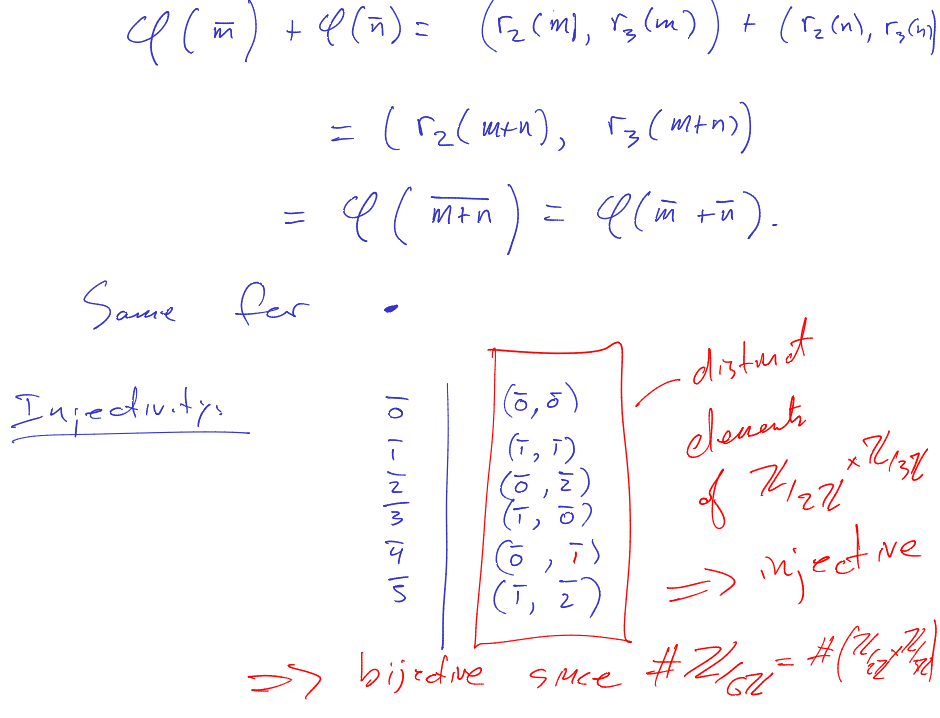 φ(m̄) + φ(n̄) = (r₂(m), r₃(m)) + (r₂(n), r₃(n))
= (r₂(m+n), r₃(m+n))
= φ(\overline{m+n}) = φ(m̄ + n̄).
Same for •
Injectivity:
0̄ | (0̄, 0̄)
1̄ | (1̄, 1̄)
2̄ | (0̄, 2̄)
3̄ | (1̄, 0̄)
4̄ | (0̄, 1̄)
5̄ | (1̄, 2̄)
distinct
elements
of ℤ/2ℤ × ℤ/3ℤ
⇒ injective
⇒ bijective since #ℤ/6ℤ = #(ℤ/2ℤ × ℤ/3ℤ)